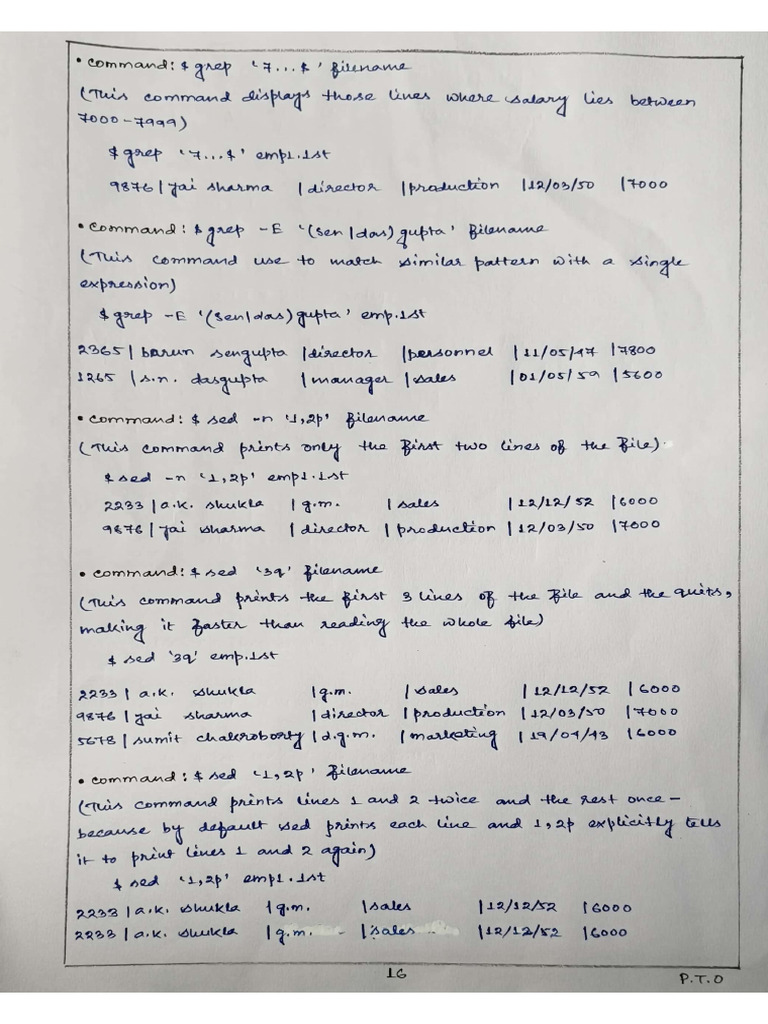 • command: $ grep '7...$' filename
(This command displays those lines where salary lies between
7000-7999)
$ grep '7...$' emp1.1st
9876 | jai sharma | director | production | 12/03/50 | 7000
• command: $ grep -E '(sen|das)gupta' filename
(This command use to match similar pattern with a single
expression)
$ grep -E '(sen|das)gupta' emp.1st
2365 | barun sengupta | director | personnel | 11/05/47 | 7800
1265 | s.n. dasgupta | manager | sales | 01/05/59 | 5600
• command: $ sed -n '1,2p' filename
(This command prints only the first two lines of the file).
$ sed -n '1,2p' emp1.1st
2233 | a.k. shukla | g.m. | sales | 12/12/52 | 6000
9876 | jai sharma | director | production | 12/03/50 | 7000
• command: $ sed '3q' filename
(This command prints the first 3 lines of the file and the quits,
making it faster than reading the whole file)
$ sed '3q' emp.1st
2233 | a.k. shukla | g.m. | sales | 12/12/52 | 6000
9876 | jai sharma | director | production | 12/03/50 | 7000
5678 | sumit chakroborty | d.g.m. | marketing | 19/04/43 | 6000
• command: $ sed '1,2p' filename
(This command prints lines 1 and 2 twice and the rest once -
because by default sed prints each line and 1,2p explicitly tells
it to print lines 1 and 2 again)
$ sed '1,2p' emp1.1st
2233 | a.k. shukla | g.m. | sales | 12/12/52 | 6000
2233 | a.k. shukla | g.m. | sales | 12/12/52 | 6000
16
P.T.O